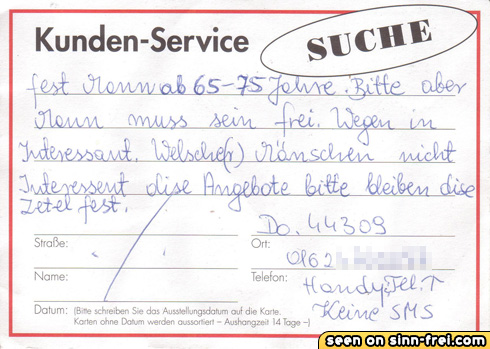 Kunden-Service
SUCHE
fest Mann ab 65-75 Jahre. Bitte aber
Mann muss sein frei. Wegen in
Interessant. Welsche(r) Mänschen nicht
Interessent dise Angebote bitte bleiben dise
Zetel fest.
Do. 44309
Straße:
Ort:
0162
Name:
Telefon:
Handy, Tel. T
Keine SMS
Datum: (Bitte schreiben Sie das Ausstellungsdatum auf die Karte.
Karten ohne Datum werden aussortiert – Aushangzeit 14 Tage –)
seen on sinn-frei.com